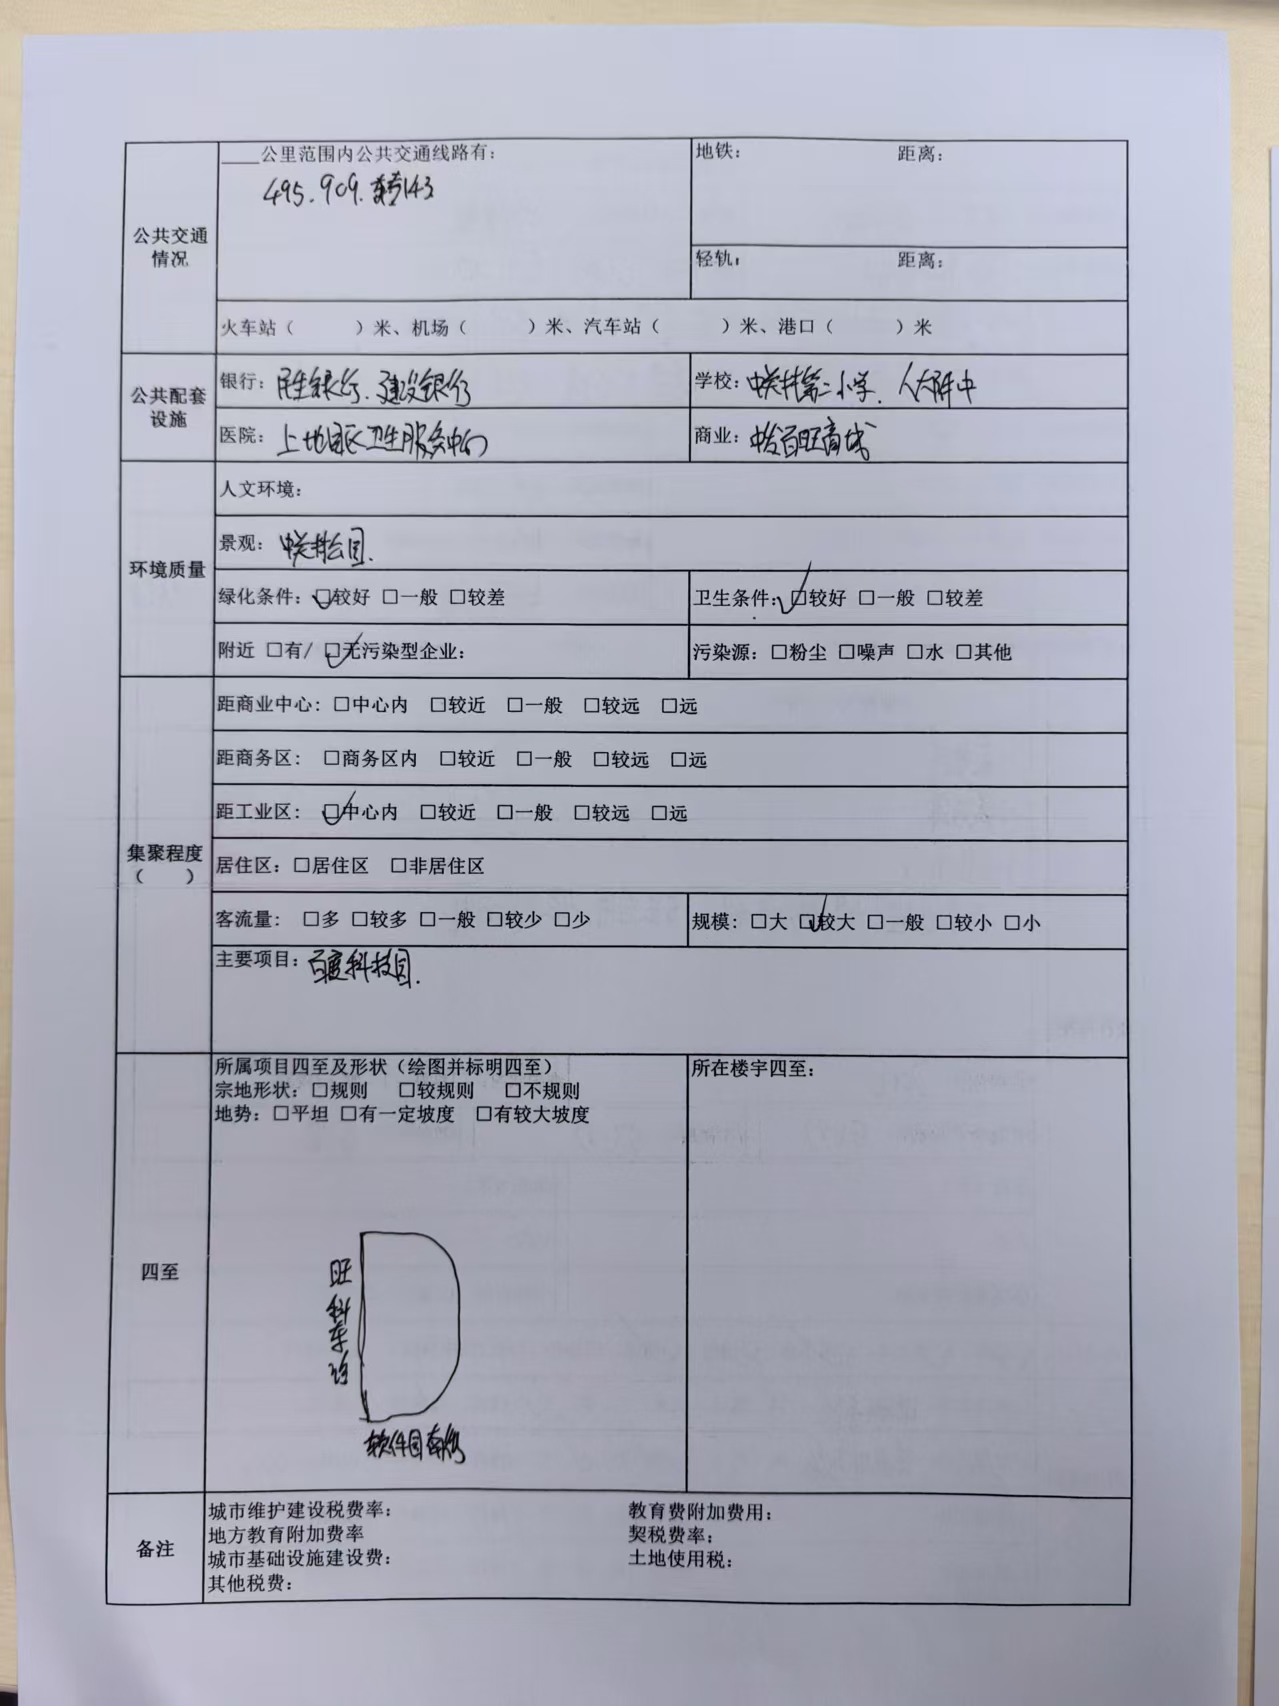 公共交通情况
____公里范围内公共交通线路有：
495.909.专143
地铁： 距离：
轻轨： 距离：
火车站（ ）米、机场（ ）米、汽车站（ ）米、港口（ ）米
公共配套设施
银行：民生银行、建设银行
学校：中关村第二小学、人大附中
医院：上地园区卫生服务中心
商业：中发百旺商城
环境质量
人文环境：
景观：中关村公园.
绿化条件：☑较好 □一般 □较差
卫生条件：☑较好 □一般 □较差
附近 □有/ ☑无污染型企业：
污染源：□粉尘 □噪声 □水 □其他
集聚程度（ ）
距商业中心：□中心内 □较近 □一般 □较远 □远
距商务区： □商务区内 □较近 □一般 □较远 □远
距工业区： ☑中心内 □较近 □一般 □较远 □远
居住区：□居住区 □非居住区
客流量： □多 □较多 □一般 □较少 □少
规模：□大 ☑较大 □一般 □较小 □小
主要项目：百度科技园.
四至
所属项目四至及形状（绘图并标明四至）
宗地形状：□规则 □较规则 □不规则
地势：□平坦 □有一定坡度 □有较大坡度
旺科东路
软件园南街
所在楼宇四至：
备注
城市维护建设税费率： 教育费附加费用：
地方教育附加费率 契税费率：
城市基础设施建设费： 土地使用税：
其他税费：